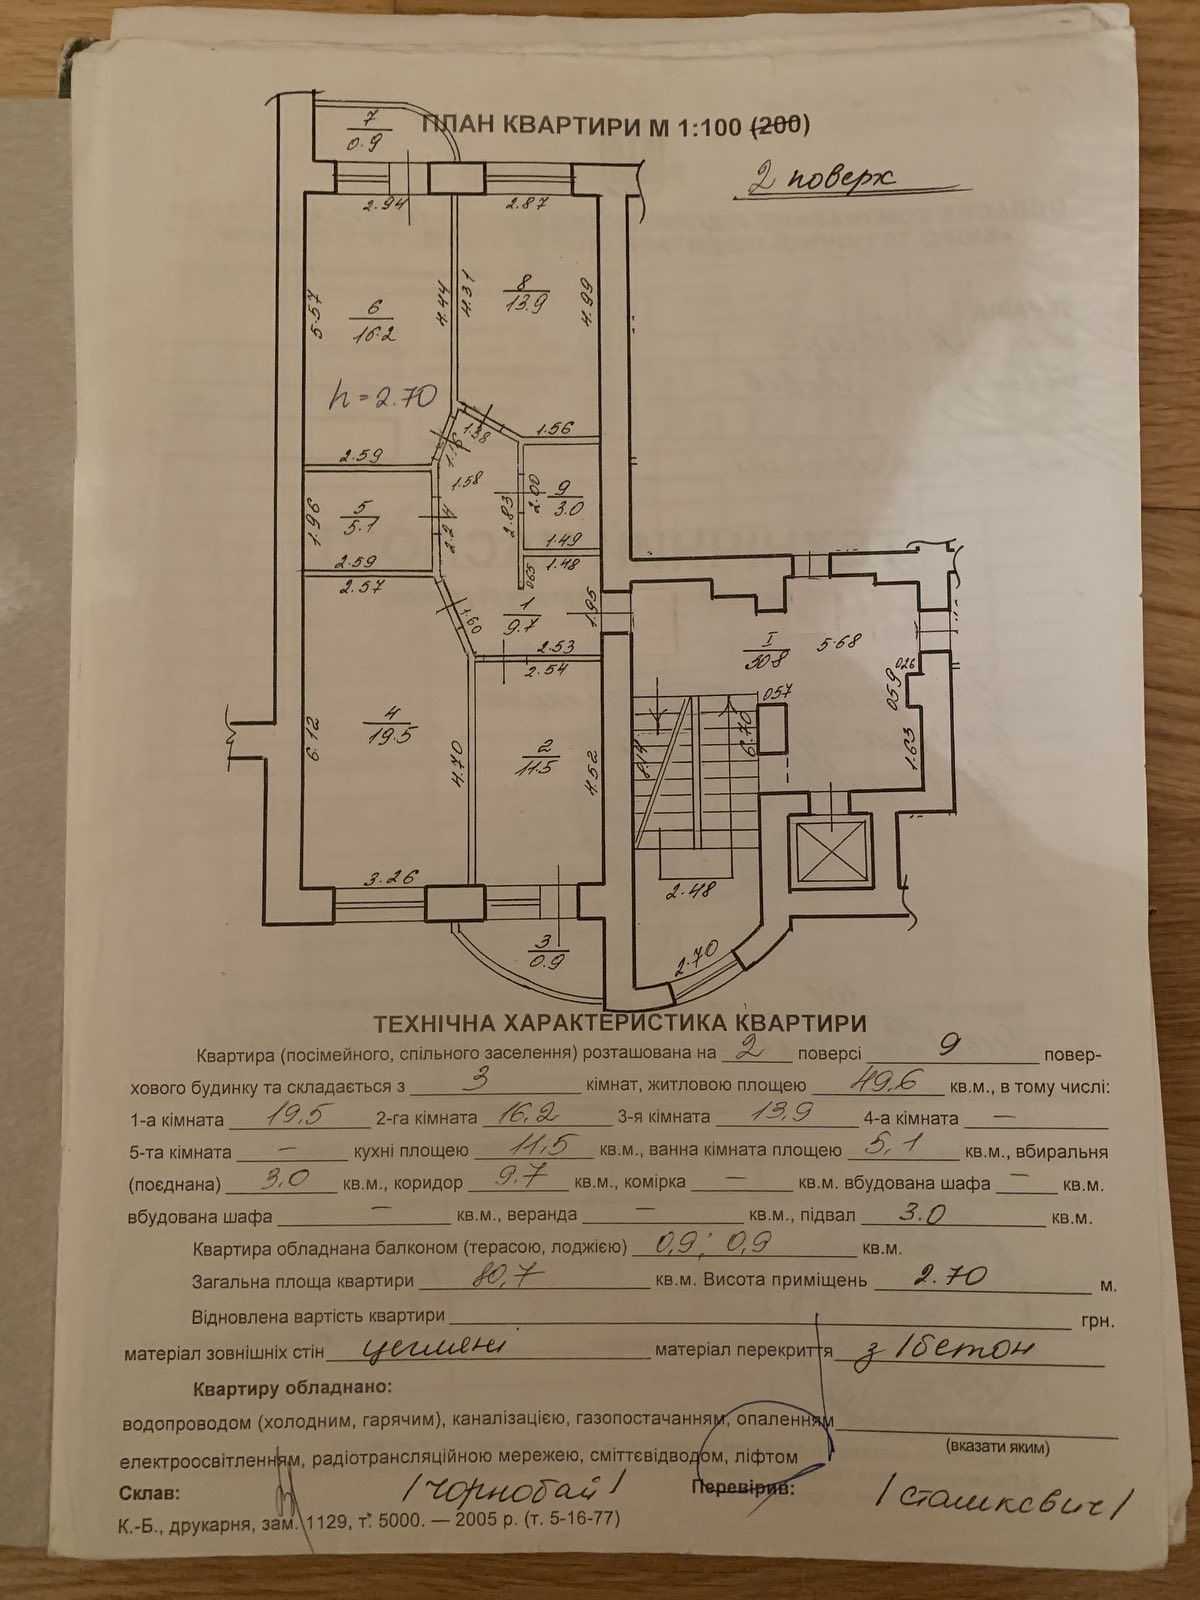 ПЛАН КВАРТИРИ М 1:100 (200)
2 поверх
7
0.9
2.94
2.87
5.57
6
16.2
4.44
4.31
8
13.9
4.99
h = 2.70
2.59
1.16
1.38
1.56
1.58
1.96
5
5.1
2.24
2.83
2.00
9
3.0
2.59
1.49
2.57
1.48
065
1.60
1
9.7
1.95
2.53
2.54
I
30.8
5.68
026
059
057
6.12
4
19.5
4.70
2
11.5
4.52
6.70
1.63
3.26
2.48
3
0.9
2.70
ТЕХНІЧНА ХАРАКТЕРИСТИКА КВАРТИРИ
Квартира (посімейного, спільного заселення) розташована на 2 поверсі 9 повер-
хового будинку та складається з 3 кімнат, житловою площею 49,6 кв.м., в тому числі:
1-а кімната 19,5 2-га кімната 16,2 3-я кімната 13,9 4-а кімната —
5-та кімната — кухні площею 11,5 кв.м., ванна кімната площею 5,1 кв.м., вбиральня
(поєднана) 3,0 кв.м., коридор 9.7 кв.м., комірка — кв.м. вбудована шафа — кв.м.
вбудована шафа — кв.м., веранда — кв.м., підвал 3.0 кв.м.
Квартира обладнана балконом (терасою, лоджією) 0,9; 0,9 кв.м.
Загальна площа квартири 80,7 кв.м. Висота приміщень 2.70 м.
Відновлена вартість квартири грн.
матеріал зовнішніх стін цегляні матеріал перекриття з/бетон
Квартиру обладнано:
водопроводом (холодним, гарячим), каналізацією, газопостачанням, опаленням
(вказати яким)
електроосвітленням, радіотрансляційною мережею, сміттєвідводом, ліфтом
Склав: /Чорнобай/ Перевірив: /Сташкевич/
К.-Б., друкарня, зам. 1129, т. 5000. — 2005 р. (т. 5-16-77)